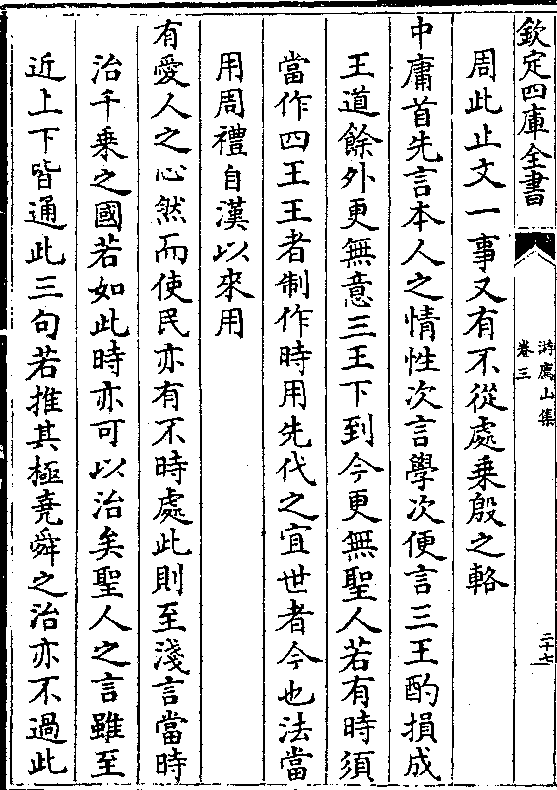 欽定四庫全書
游廌山集
卷三
三十七
周此止文一事又有不從處乗殷之輅
中庸首先言本人之情性次言學次便言三王酌損成
王道餘外更無意三王下到今更無聖人若有時須
當作四王王者制作時用先代之宜世者今也法當
用周禮自漢以來用
有愛人之心然而使民亦有不時處此則至淺言當時
治千乗之國若如此時亦可以治矣聖人之言雖至
近上下皆通此三句若推其極堯舜之治亦不過此